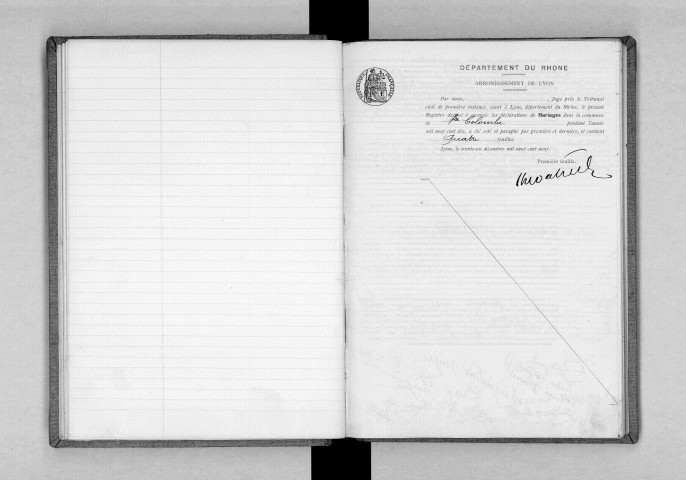 DÉPARTEMENT DU RHÔNE
ARRONDISSEMENT DE LYON
Par nous, , Juge près le Tribunal
civil de première instance, séant à Lyon, département du Rhône, le présent
Registre destiné à recevoir les déclarations de Mariages dans la commune
de Ste Colombe pendant l'année
mil neuf cent dix, a été coté et paraphé par première et dernière, et contient
Quatre feuilles.
Lyon, le trente-un décembre mil neuf cent neuf.
Première feuille.